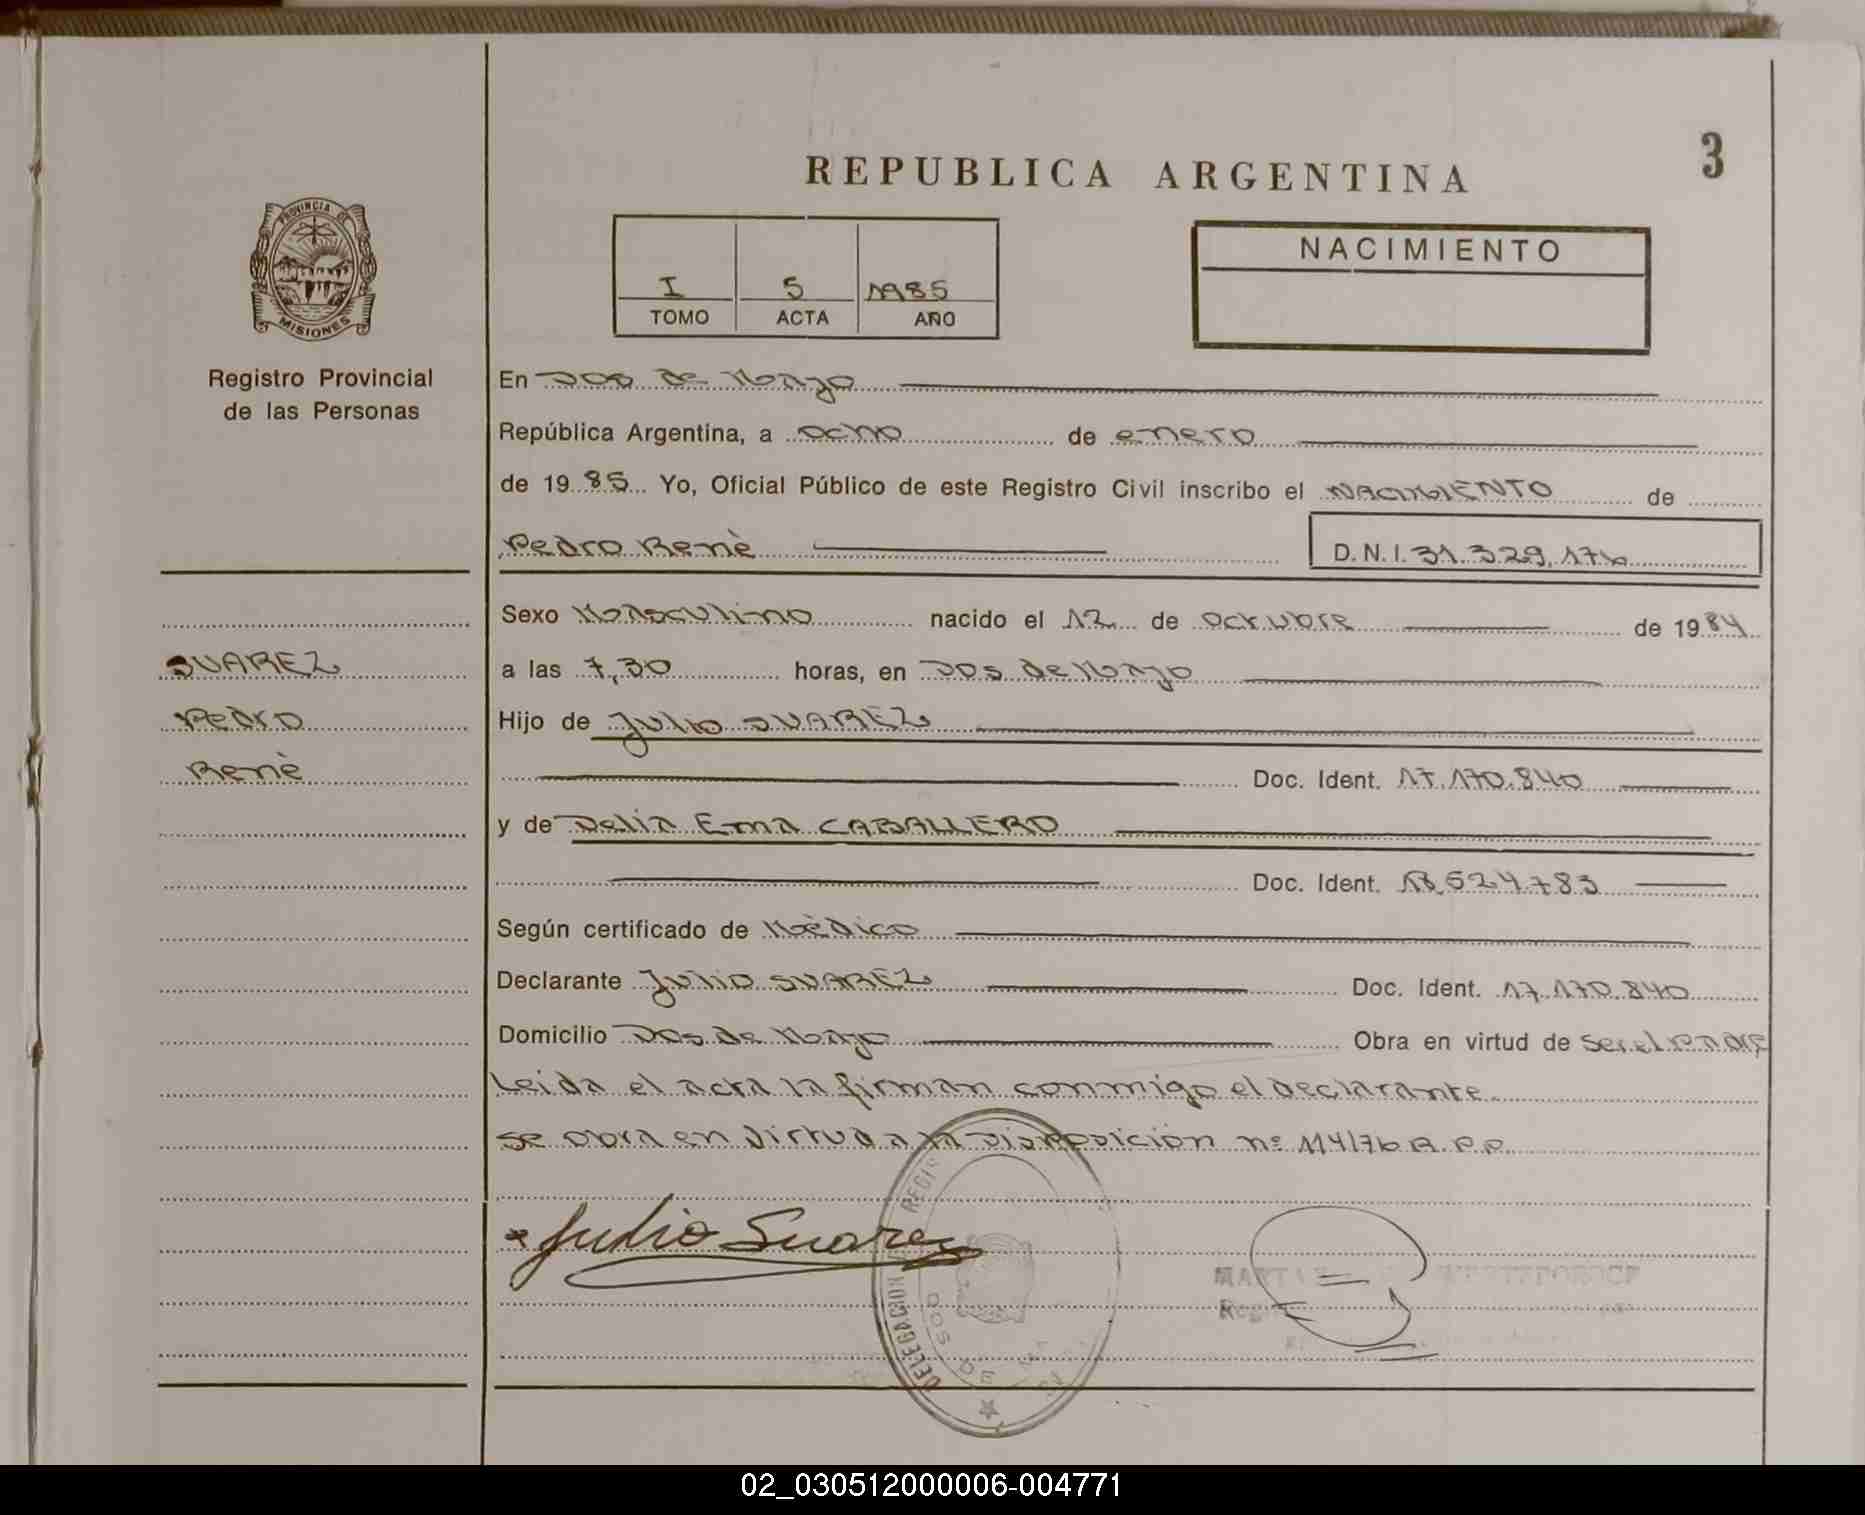 REPUBLICA ARGENTINA
3
PROVINCIA DE
MISIONES
Registro Provincial
de las Personas
I 5 1985
TOMO ACTA AÑO
NACIMIENTO
En Dos de Mayo
República Argentina, a ocho de enero
de 1985 Yo, Oficial Público de este Registro Civil inscribo el NACIMIENTO de
Pedro Renè D.N.I. 31.329.176
Sexo Masculino nacido el 12 de octubre de 1984
SUAREZ
Pedro
Renè
a las 7,30 horas, en Dos de Mayo
Hijo de Julio SUAREZ
Doc. Ident. 17.170.840
y de Delia Ema CABALLERO
Doc. Ident. 18.524.783
Según certificado de Mèdico
Declarante Julio SUAREZ Doc. Ident. 17.170.840
Domicilio Dos de Mayo Obra en virtud de ser el padre
Leida el acta la firman conmigo el declarante
se obra en virtud a la Disposición nº 114/76 R.P.P.
Julio Suarez
DELEGACION
DOS DE
02_030512000006-004771